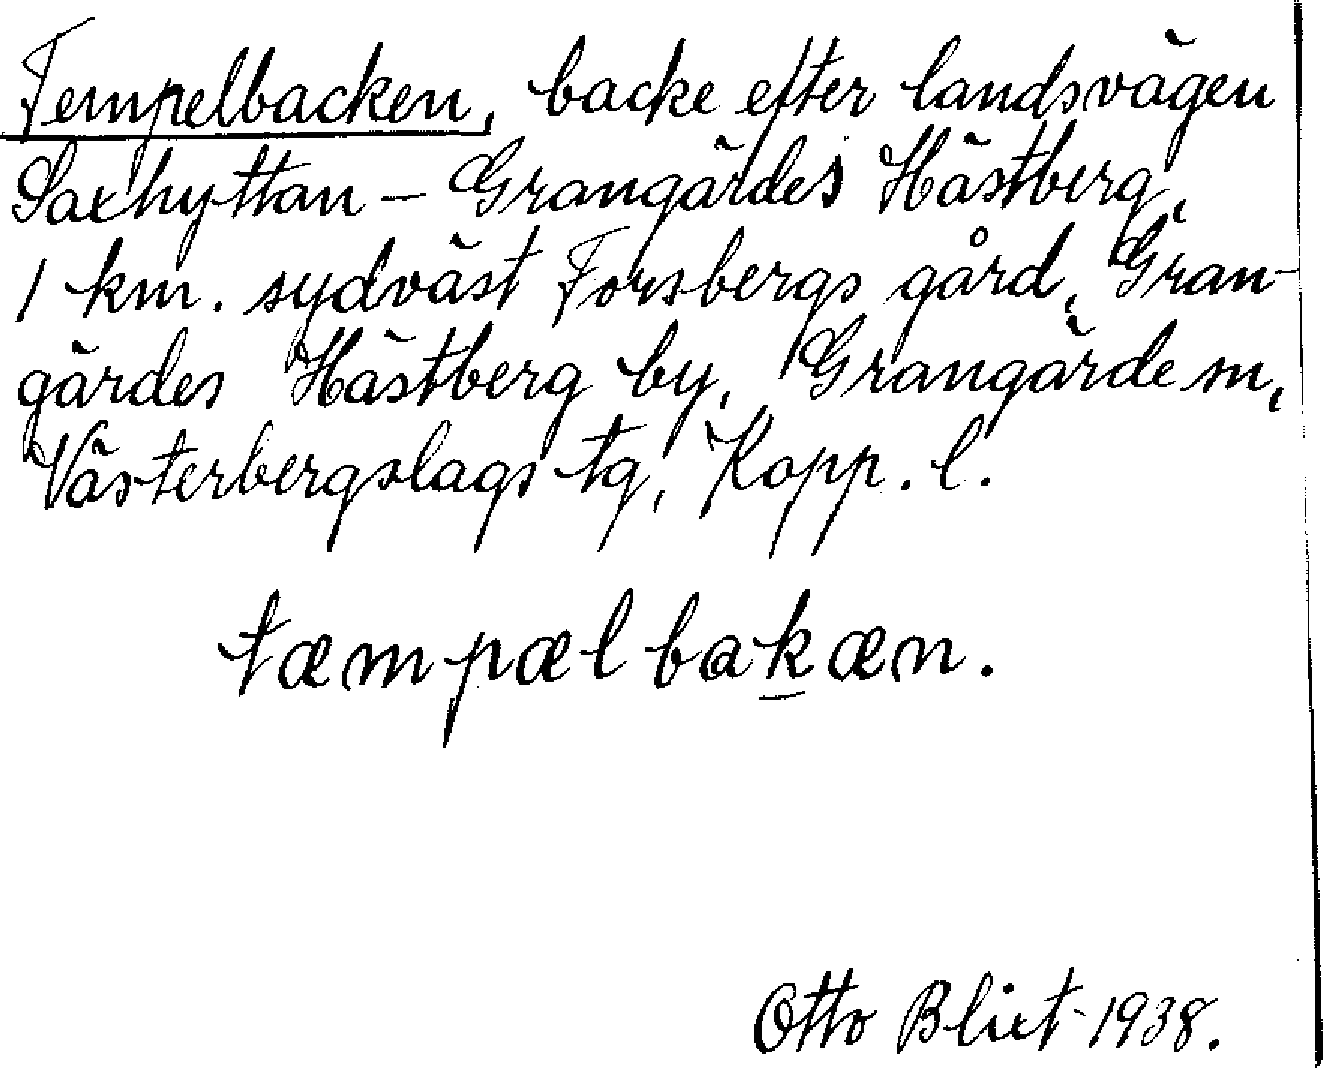 Tempelbacken, backe efter landsvägen
Saxhyttan – Grangärdes Hästberg,
1 km. sydväst Forsbergs gård, Gran-
gärdes Hästberg by, Grangärde sn,
Västerbergslags tg, Kopp. l.
tæmpælbakæn.
Otto Blixt 1938.